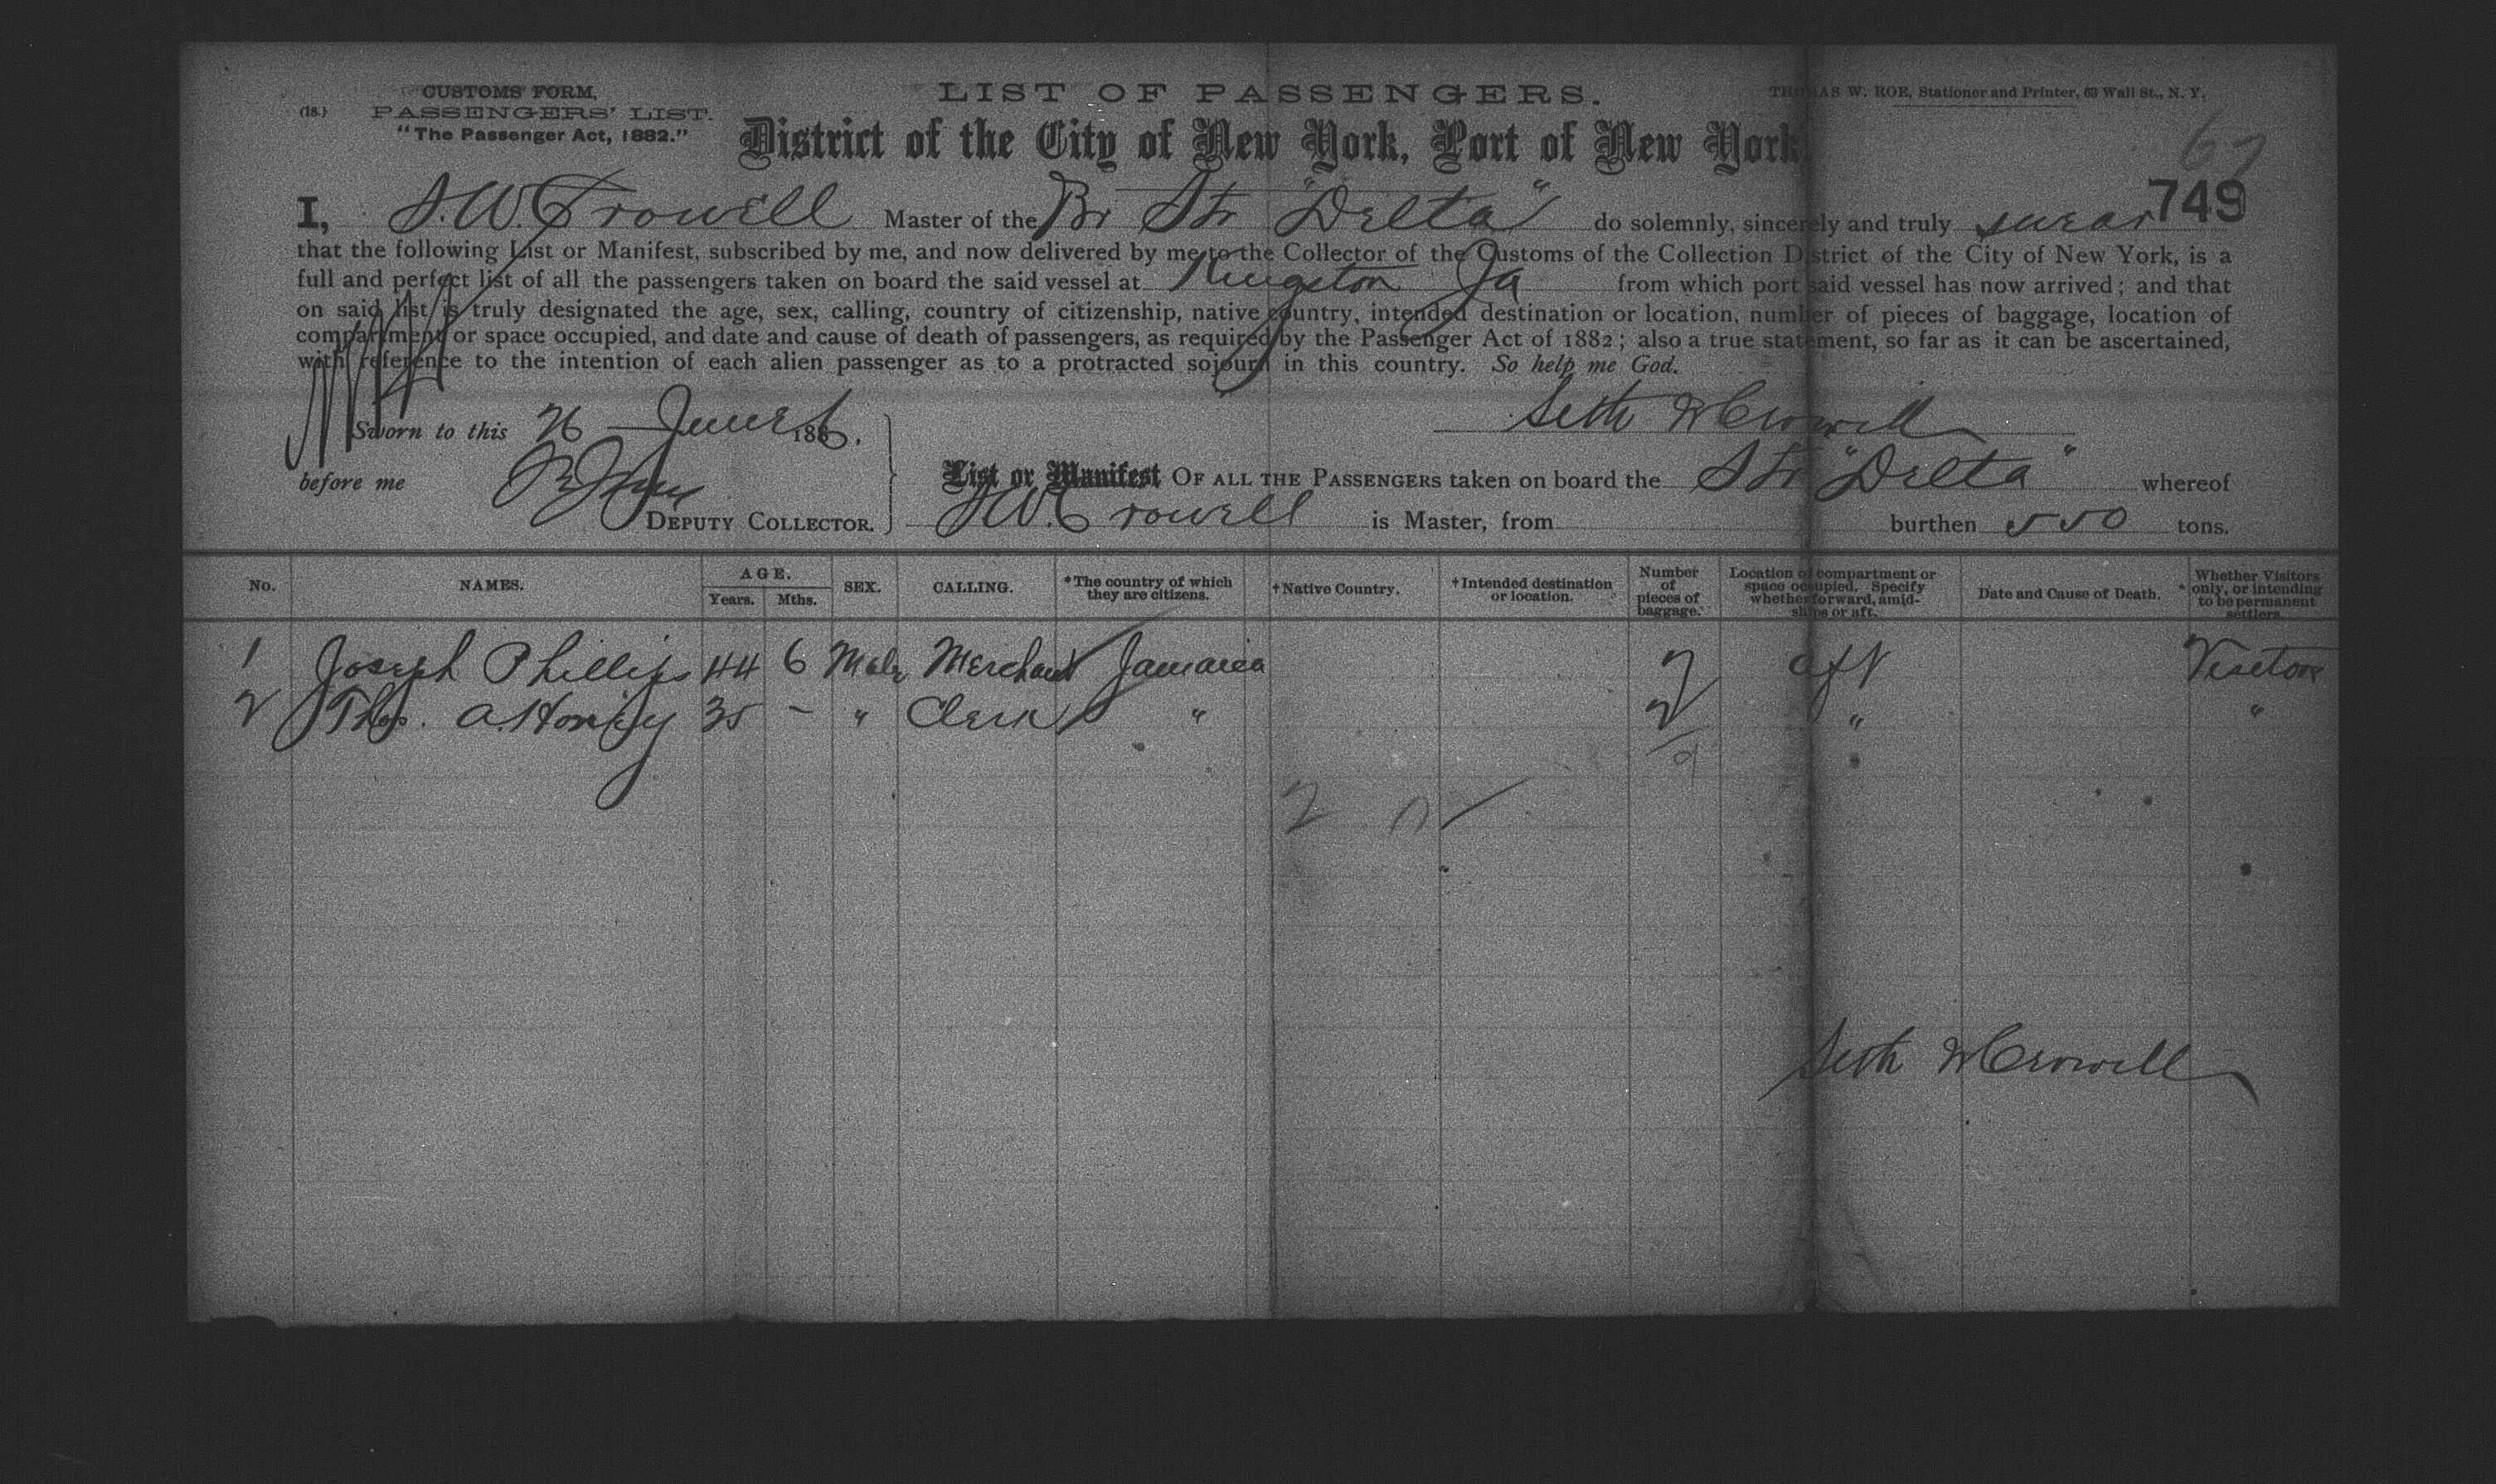 CUSTOMS FORM,
(18.) PASSENGERS' LIST.
"The Passenger Act, 1882."
LIST OF PASSENGERS.
THOMAS W. ROE, Stationer and Printer, 63 Wall St., N. Y.
District of the City of New York, Port of New York
67
749
I, S. W. Crowell Master of the Br Str "Delta" do solemnly, sincerely and truly swear
that the following List or Manifest, subscribed by me, and now delivered by me to the Collector of the Customs of the Collection District of the City of New York, is a
full and perfect list of all the passengers taken on board the said vessel at Kingston Ja from which port said vessel has now arrived; and that
on said list is truly designated the age, sex, calling, country of citizenship, native country, intended destination or location, number of pieces of baggage, location of
compartment or space occupied, and date and cause of death of passengers, as required by the Passenger Act of 1882; also a true statement, so far as it can be ascertained,
with reference to the intention of each alien passenger as to a protracted sojourn in this country. So help me God.
Sworn to this 26 June 1886.
Seth W Crowell
before me
DEPUTY COLLECTOR.
List or Manifest OF ALL THE PASSENGERS taken on board the Str "Delta" whereof
S W. Crowell is Master, from burthen 550 tons.
No. NAMES. AGE. Years. Mths. SEX. CALLING. *The country of which they are citizens. †Native Country. †Intended destination or location. Number of pieces of baggage. Location of compartment or space occupied. Specify whether forward, amidships or aft. Date and Cause of Death. * Whether Visitors only, or intending to be permanent settlers.
1 Joseph Phillips 44 6 Male Merchant Jamaica 7 aft Visitor
2 Thos. A. 35 - " Clerk " 2 " "
9
2
Seth W Crowell